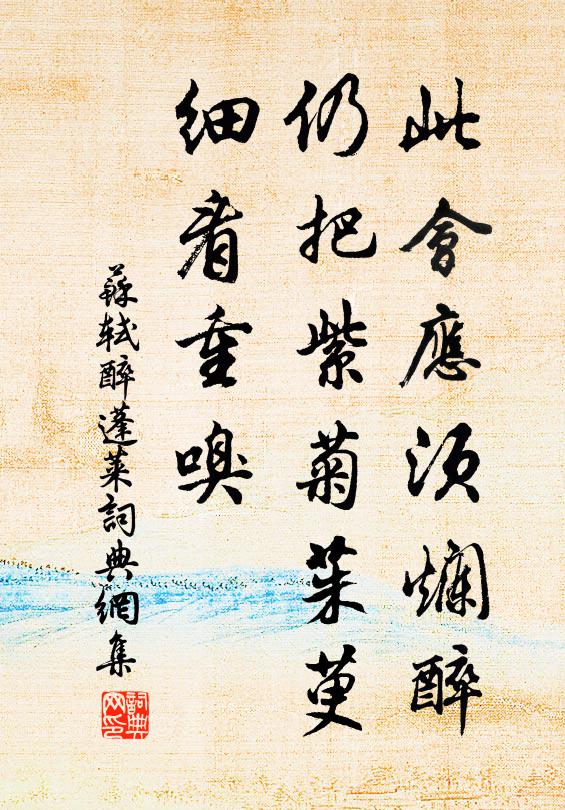 此會應須爛醉
仍把紫菊茱萸
細看重嗅
蘇軾醉蓬萊詞典網集
詞典网印